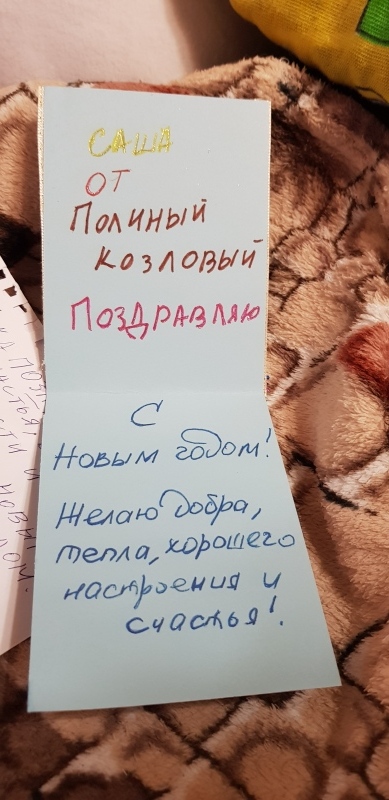 САША
ОТ
ПОЛИНЫЙ
КОЗЛОВЫЙ
ПОЗДРАВЛЯЮ
С
Новым годом!
Желаю добра,
тепла, хорошего
настроения и
счастья!